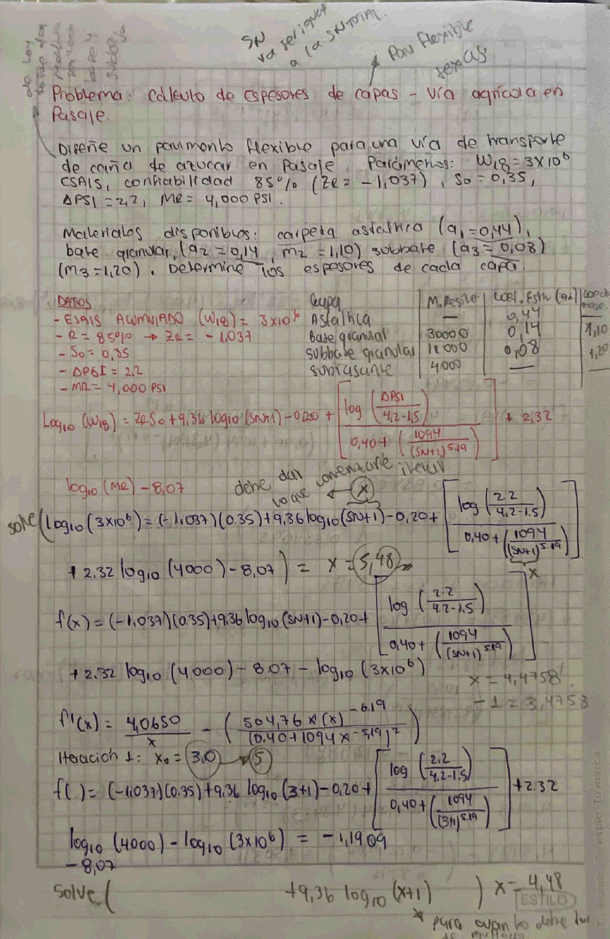 SN
va ser igual
a la SN TOTAL
Pav Flexible
Problema: Cálculo de espesores de capas - vía agrícola en
Pasaje.
Diseñe un pavimento flexible para una vía de transporte
de caña de azucar en Pasaje. Parámenos: W18 = 3x10^6
ESALS, confiabilidad 85% (ZR = -1,037), So = 0,35,
ΔPSI = 2,2, MR = 4,000 PSI.
Materiales disponibles: carpeta asfaltica (a1 = 0,44),
base granular, (a2 = 0,14, m2 = 1,10) subbase (a3 = 0,08)
(m3 = 1,20). Determine los espesores de cada capa.
DATOS
- ESALS ACUMULADO (W18) = 3x10^6
- R = 85% → ZR = -1,037
- So = 0,35
- ΔPSI = 2,2
- MR = 4,000 PSI
Capa M. Resile Coef. Estru (ai)
Asfaltica — 0,44
Base granular 30000 0,14 1,10
subbase granular 11000 0,08 1,20
subrasante 4000 —
Log10 (W18) = ZR So + 9,36 log10 (SN+1) - 0,20 + [log (ΔPSI / 4,2-1,5) / 0,40 + (1094 / (SN+1)^5.19)] + 2,32
log10 (MR) - 8,07
debe dar
iterar
x
solve (log10 (3x10^6) = (-1,037)(0.35) + 9,36 log10 (SN+1) - 0,20 + [log (2.2 / 4.2-1.5) / 0,40 + (1094 / (SN+1)^5.19)]
+ 2.32 log10 (4000) - 8,07) = x = 5,48
x
f(x) = (-1,037)(0.35) + 9,36 log10 (SN+1) - 0,20 + [log (2.2 / 4.2-1.5) / 0,40 + (1094 / (SN+1)^5.19)]
+ 2.32 log10 (4000) - 8.07 - log10 (3x10^6)
x = 4,4758
- 1 = 3,4753
f'(x) = 4,0650 / x - (504,76 x (x)^-6.19 / (0,40 + 1094 x^-5.19)^2)
Iteración 1: x0 = 3,0 → 5
f( ) = (-1,037)(0.35) + 9,36 log10 (3+1) - 0,20 + [log (2.2 / 4.2-1.5) / 0,40 + (1094 / (3+1)^5.19)] + 2.32
log10 (4000) - log10 (3x10^6) = -1,1909
- 8,07
solve ( +9,36 log10 (x+1) ) x = 4,48
ESTILO
* para cuanto debe